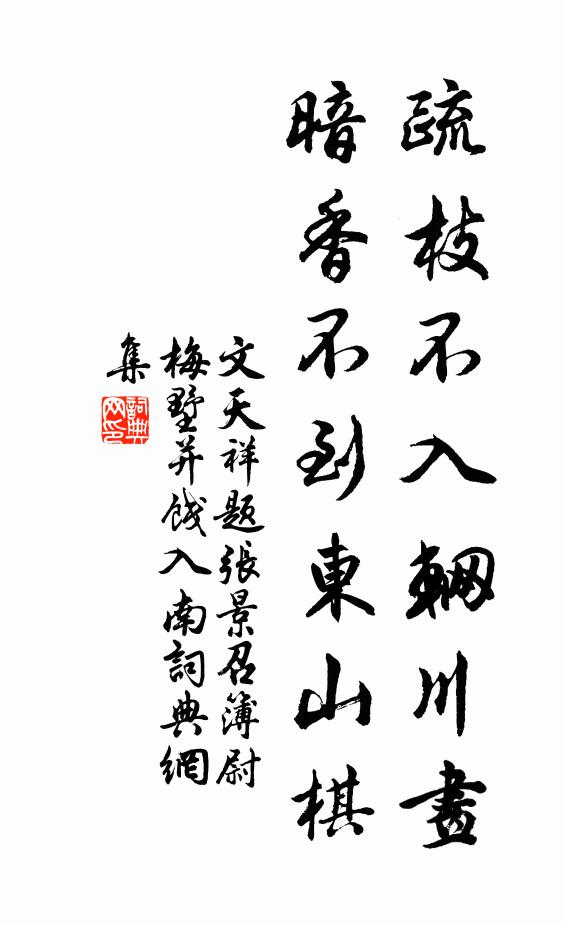 疏枝不入輞川畫
暗香不到東山棋
文天祥題張景召簿尉
梅墅并餞入南詞典網
集
詞典
网印